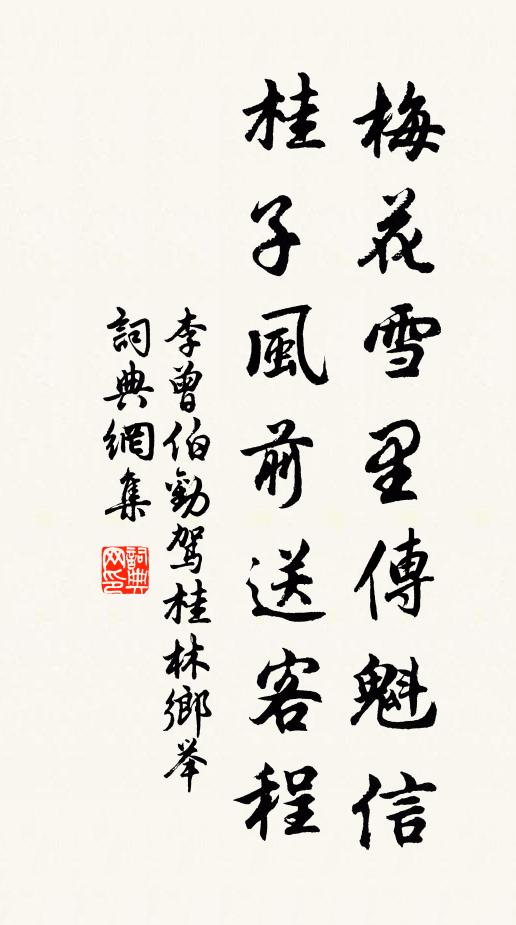 梅花雪里傳魁信
桂子風前送客程
李曾伯勸駕桂林鄉举
詞典網集
詞典网印